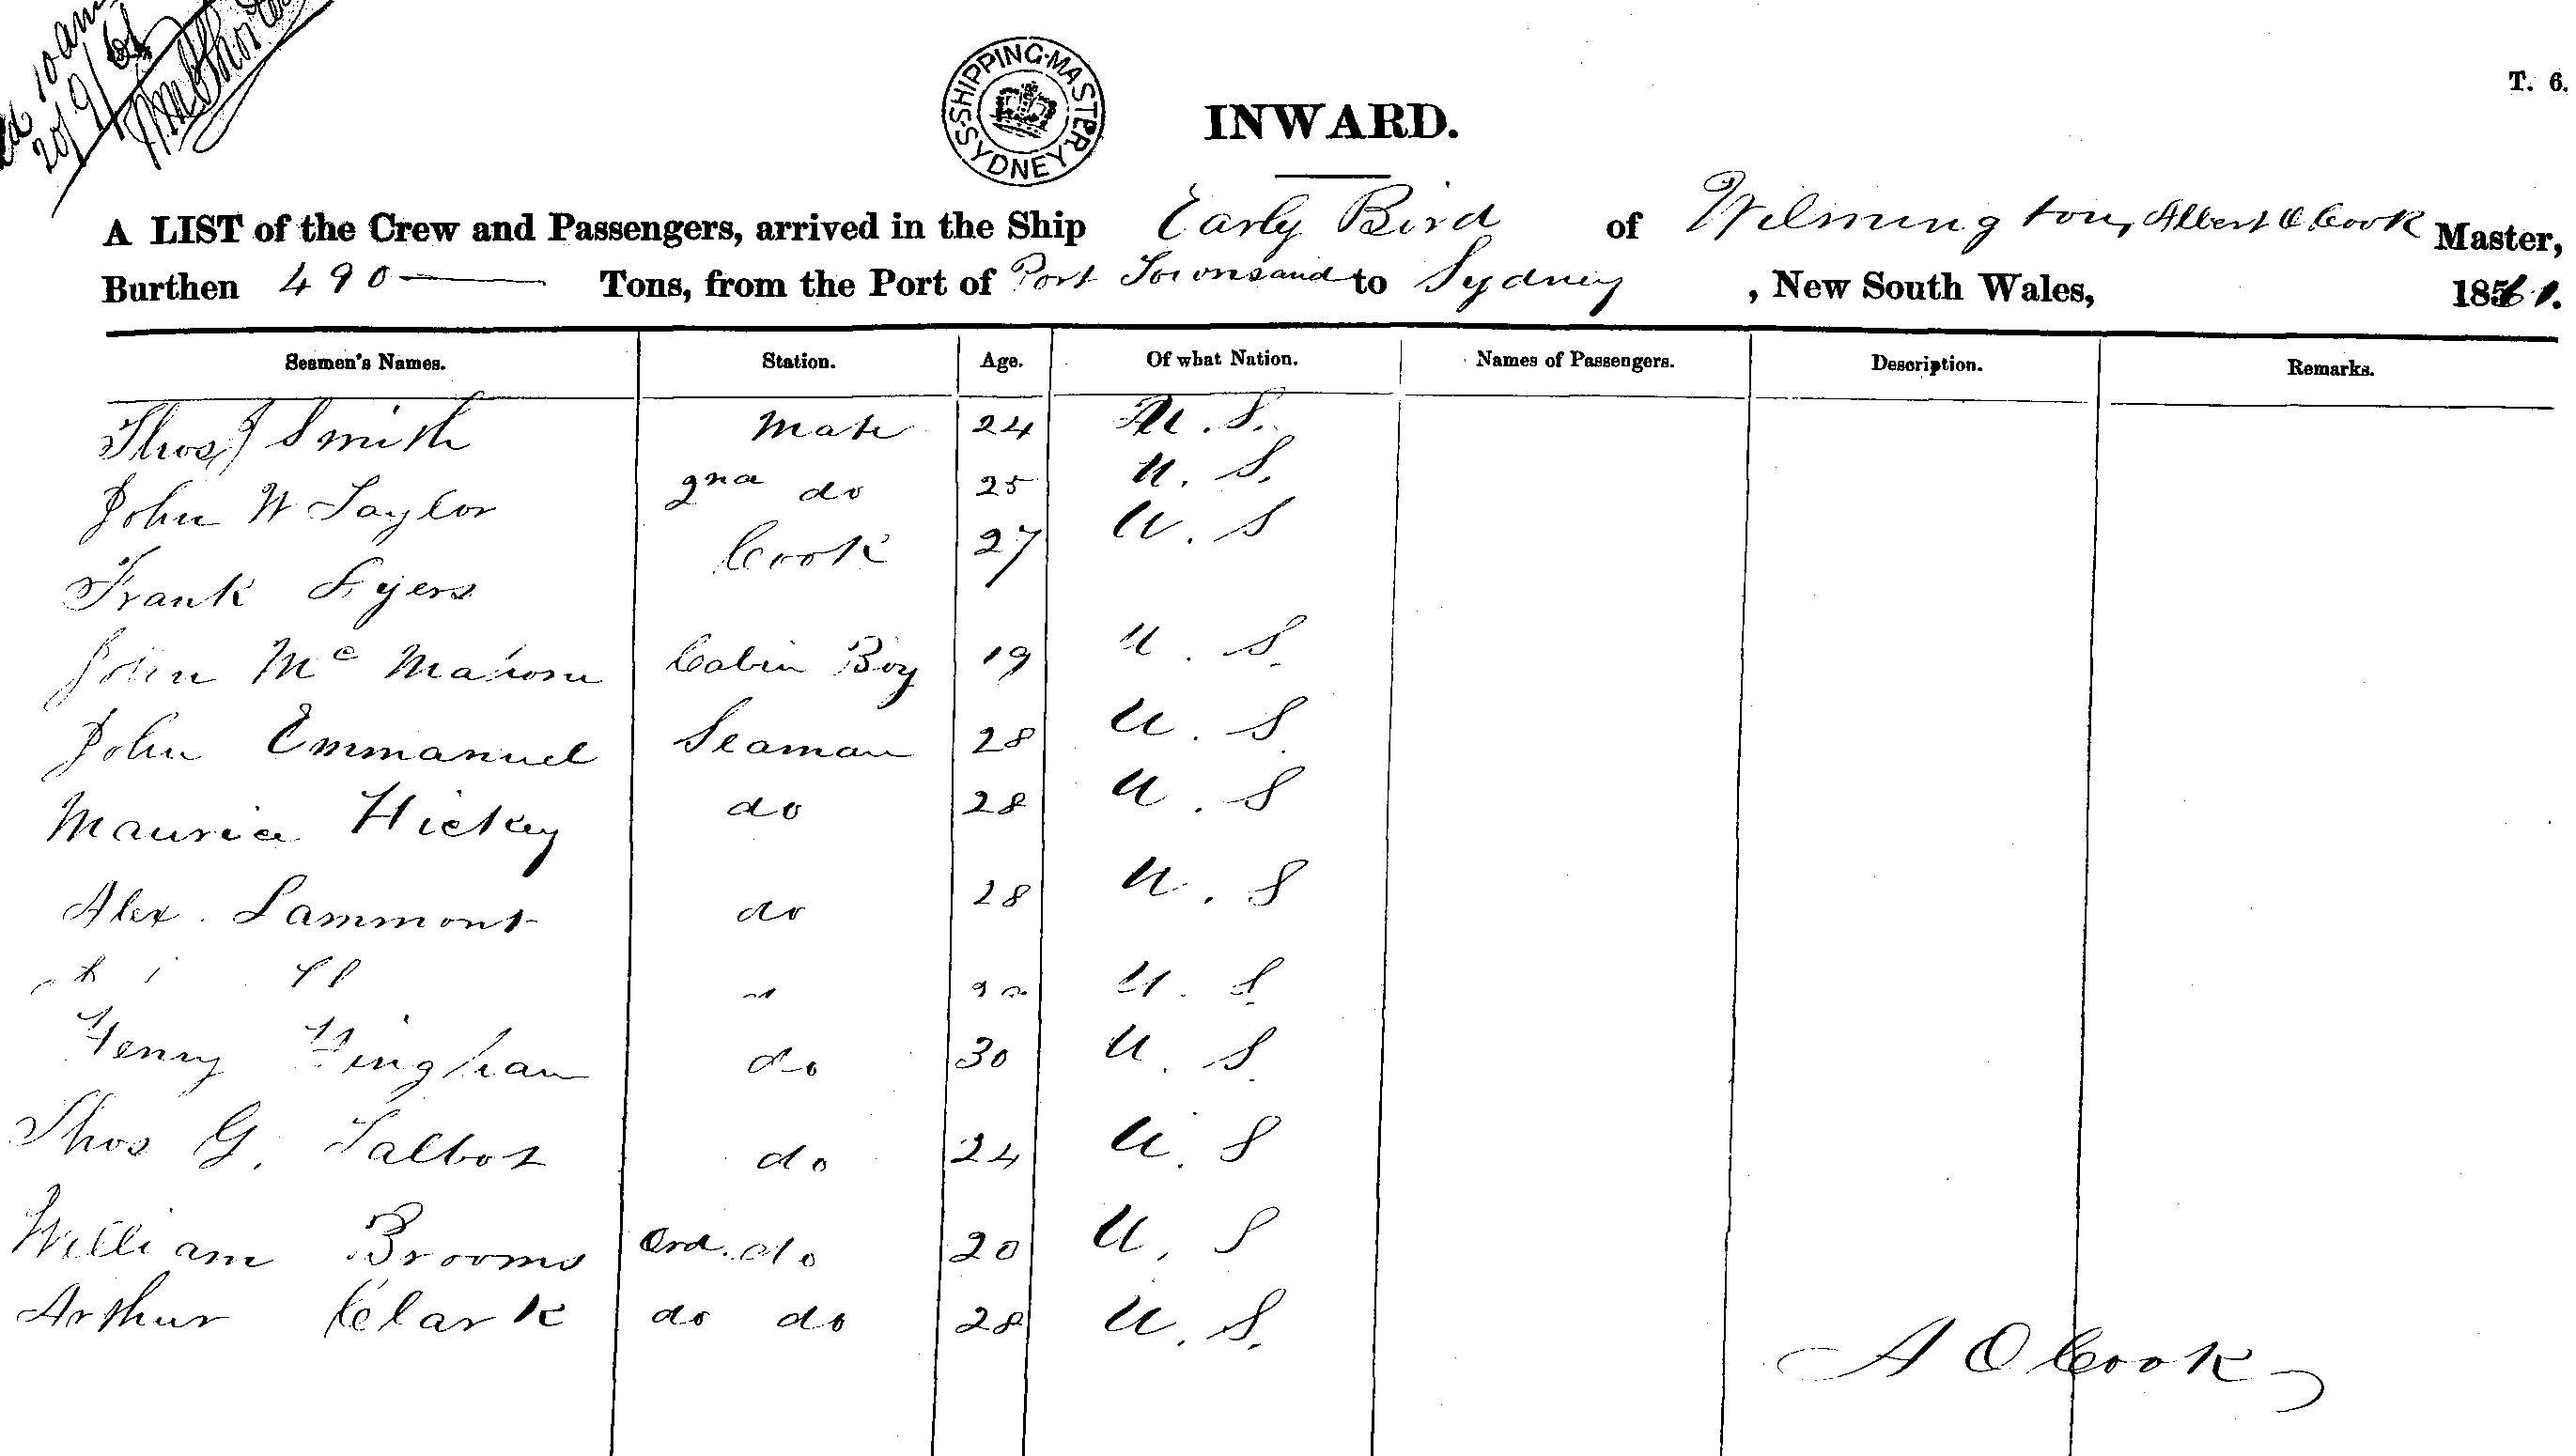 10 am
20/9/61
SHIPPING MASTER SYDNEY
T. 6.
INWARD.
A LIST of the Crew and Passengers, arrived in the Ship Early Bird of Wilmington, Albert O Cook Master,
Burthen 490 Tons, from the Port of Port Townsand to Sydney, New South Wales, 1861.
Seamen's Names. Station. Age. Of what Nation. Names of Passengers. Description. Remarks.
Thos J Smith Mate 24 U. S.
John W Taylor 2nd do 25 U. S.
Frank Cook 27 U. S
John Mc Mahon Cabin Boy 19 U. S.
John Emmanuel Seaman 28 U. S.
Maurice Hickey do 28 U. S
Alex. Lammont do 28 U. S
U. S.
Henry do 30 U. S.
Thos G. Talbot do 24 U. S
William Brooms Ord. do 20 U. S
Arthur Clark do do 28 U. S.
A O Cook